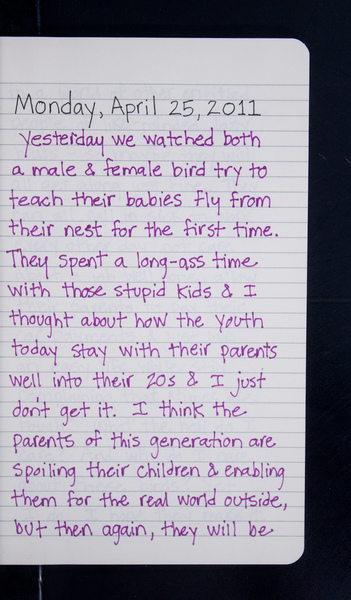 Monday, April 25, 2011
Yesterday we watched both
a male & female bird try to
teach their babies fly from
their nest for the first time.
They spent a long-ass time
with those stupid kids & I
thought about how the youth
today stay with their parents
well into their 20s & I just
don't get it. I think the
parents of this generation are
spoiling their children & enabling
them for the real world outside,
but then again, they will be